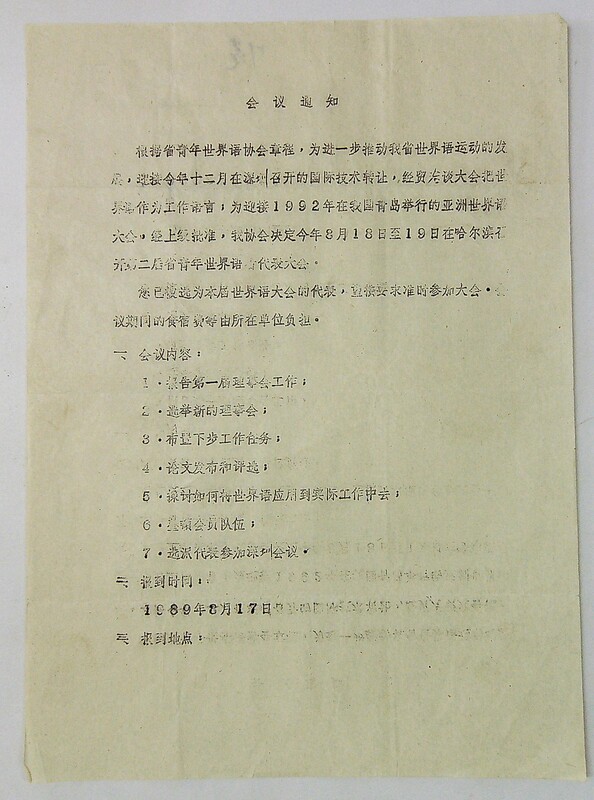 会议通知
根据省青年世界语协会章程，为进一步推动我省世界语运动的发
展，迎接今年十二月在深圳召开的国际技术转让，经贸洽谈大会把世
界语作为工作语言；为迎接1992年在我国青岛举行的亚洲世界语
大会。经上级批准，我协会决定今年8月18日至19日在哈尔滨召
开第二届省青年世界语者代表大会。
您已被选为本届世界语大会的代表，望按要求准时参加大会。会
议期间的食宿费等由所在单位负担。
一、会议内容：
1·报告第一届理事会工作；
2·选举新的理事会；
3·布置下步工作任务；
4·论文发布和评选；
5·探讨如何将世界语应用到实际工作中去；
6·整顿会员队伍；
7·选派代表参加深圳会议。
二、报到时间：
1989年8月17日
三、报到地点：